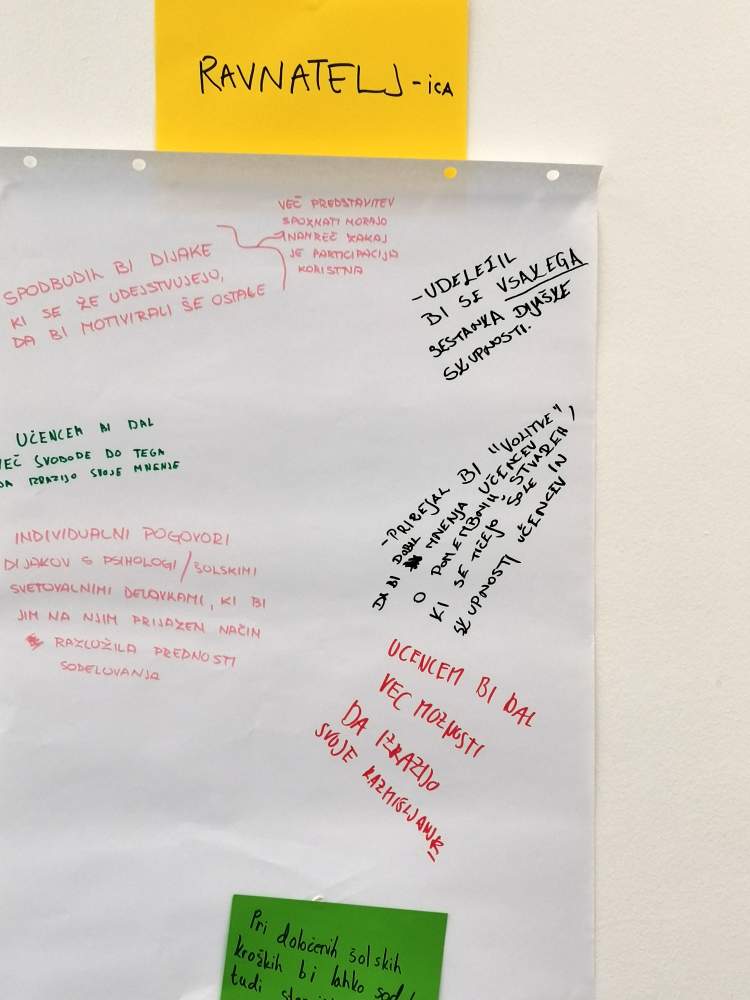 RAVNATELJ-ICA
VEČ PREDSTAVITEV
SPOZNATI MORAJO
NAMREČ ZAKAJ
JE PARTICIPACIJA
KORISTNA
SPODBUDIL BI DIJAKE
KI SE ŽE UDEJSTVUJEJO,
DA BI MOTIVIRALI ŠE OSTALE
-UDELEŽIL
BI SE VSAKEGA
SESTANKA DIJAŠKE
SKUPNOSTI.
UČENCEM BI DAL
VEČ SVOBODE DO TEGA
DA IZRAZIJO SVOJE MNENJE
-PRIREJAL BI "VOLITVE",
DA BI DOBIL MNENJA UČENCEV
O POMEMBNIH STVAREH,
KI SE TIČEJO ŠOLE IN
SKUPNOSTI UČENCEV
INDIVIDUALNI POGOVORI
DIJAKOV S PSIHOLOGI/ŠOLSKIMI
SVETOVALNIMI DELAVKAMI, KI BI
JIM NA NJIM PRIJAZEN NAČIN
RAZLOŽILA PREDNOSTI
SODELOVANJA
UCENCEM BI DAL
VEC MOZNOSTI
DA IZRAZIJO
SVOJE RAZMISLJANJE
Pri določenih šolskih
krožkih bi lahko
tudi